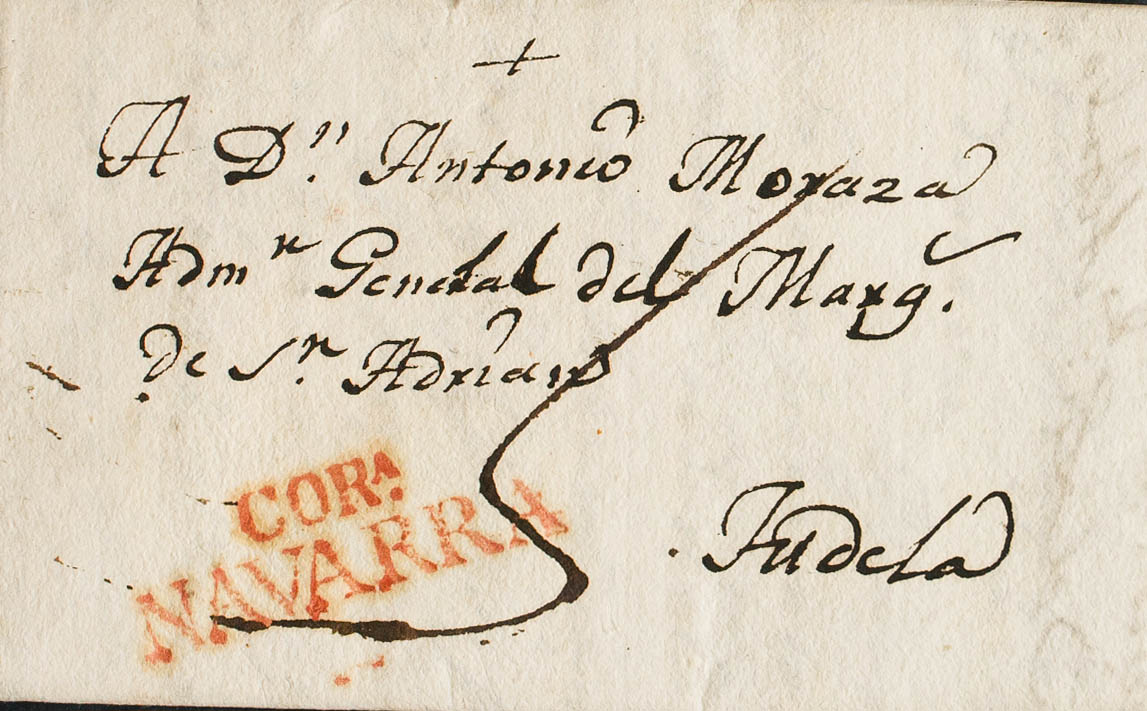 +
A D.ⁿ Antonio Moraza
Admʳ General del Marq.ˢ
de S.ⁿ Adrian
5
CORª.
NAVARRA
Tudela